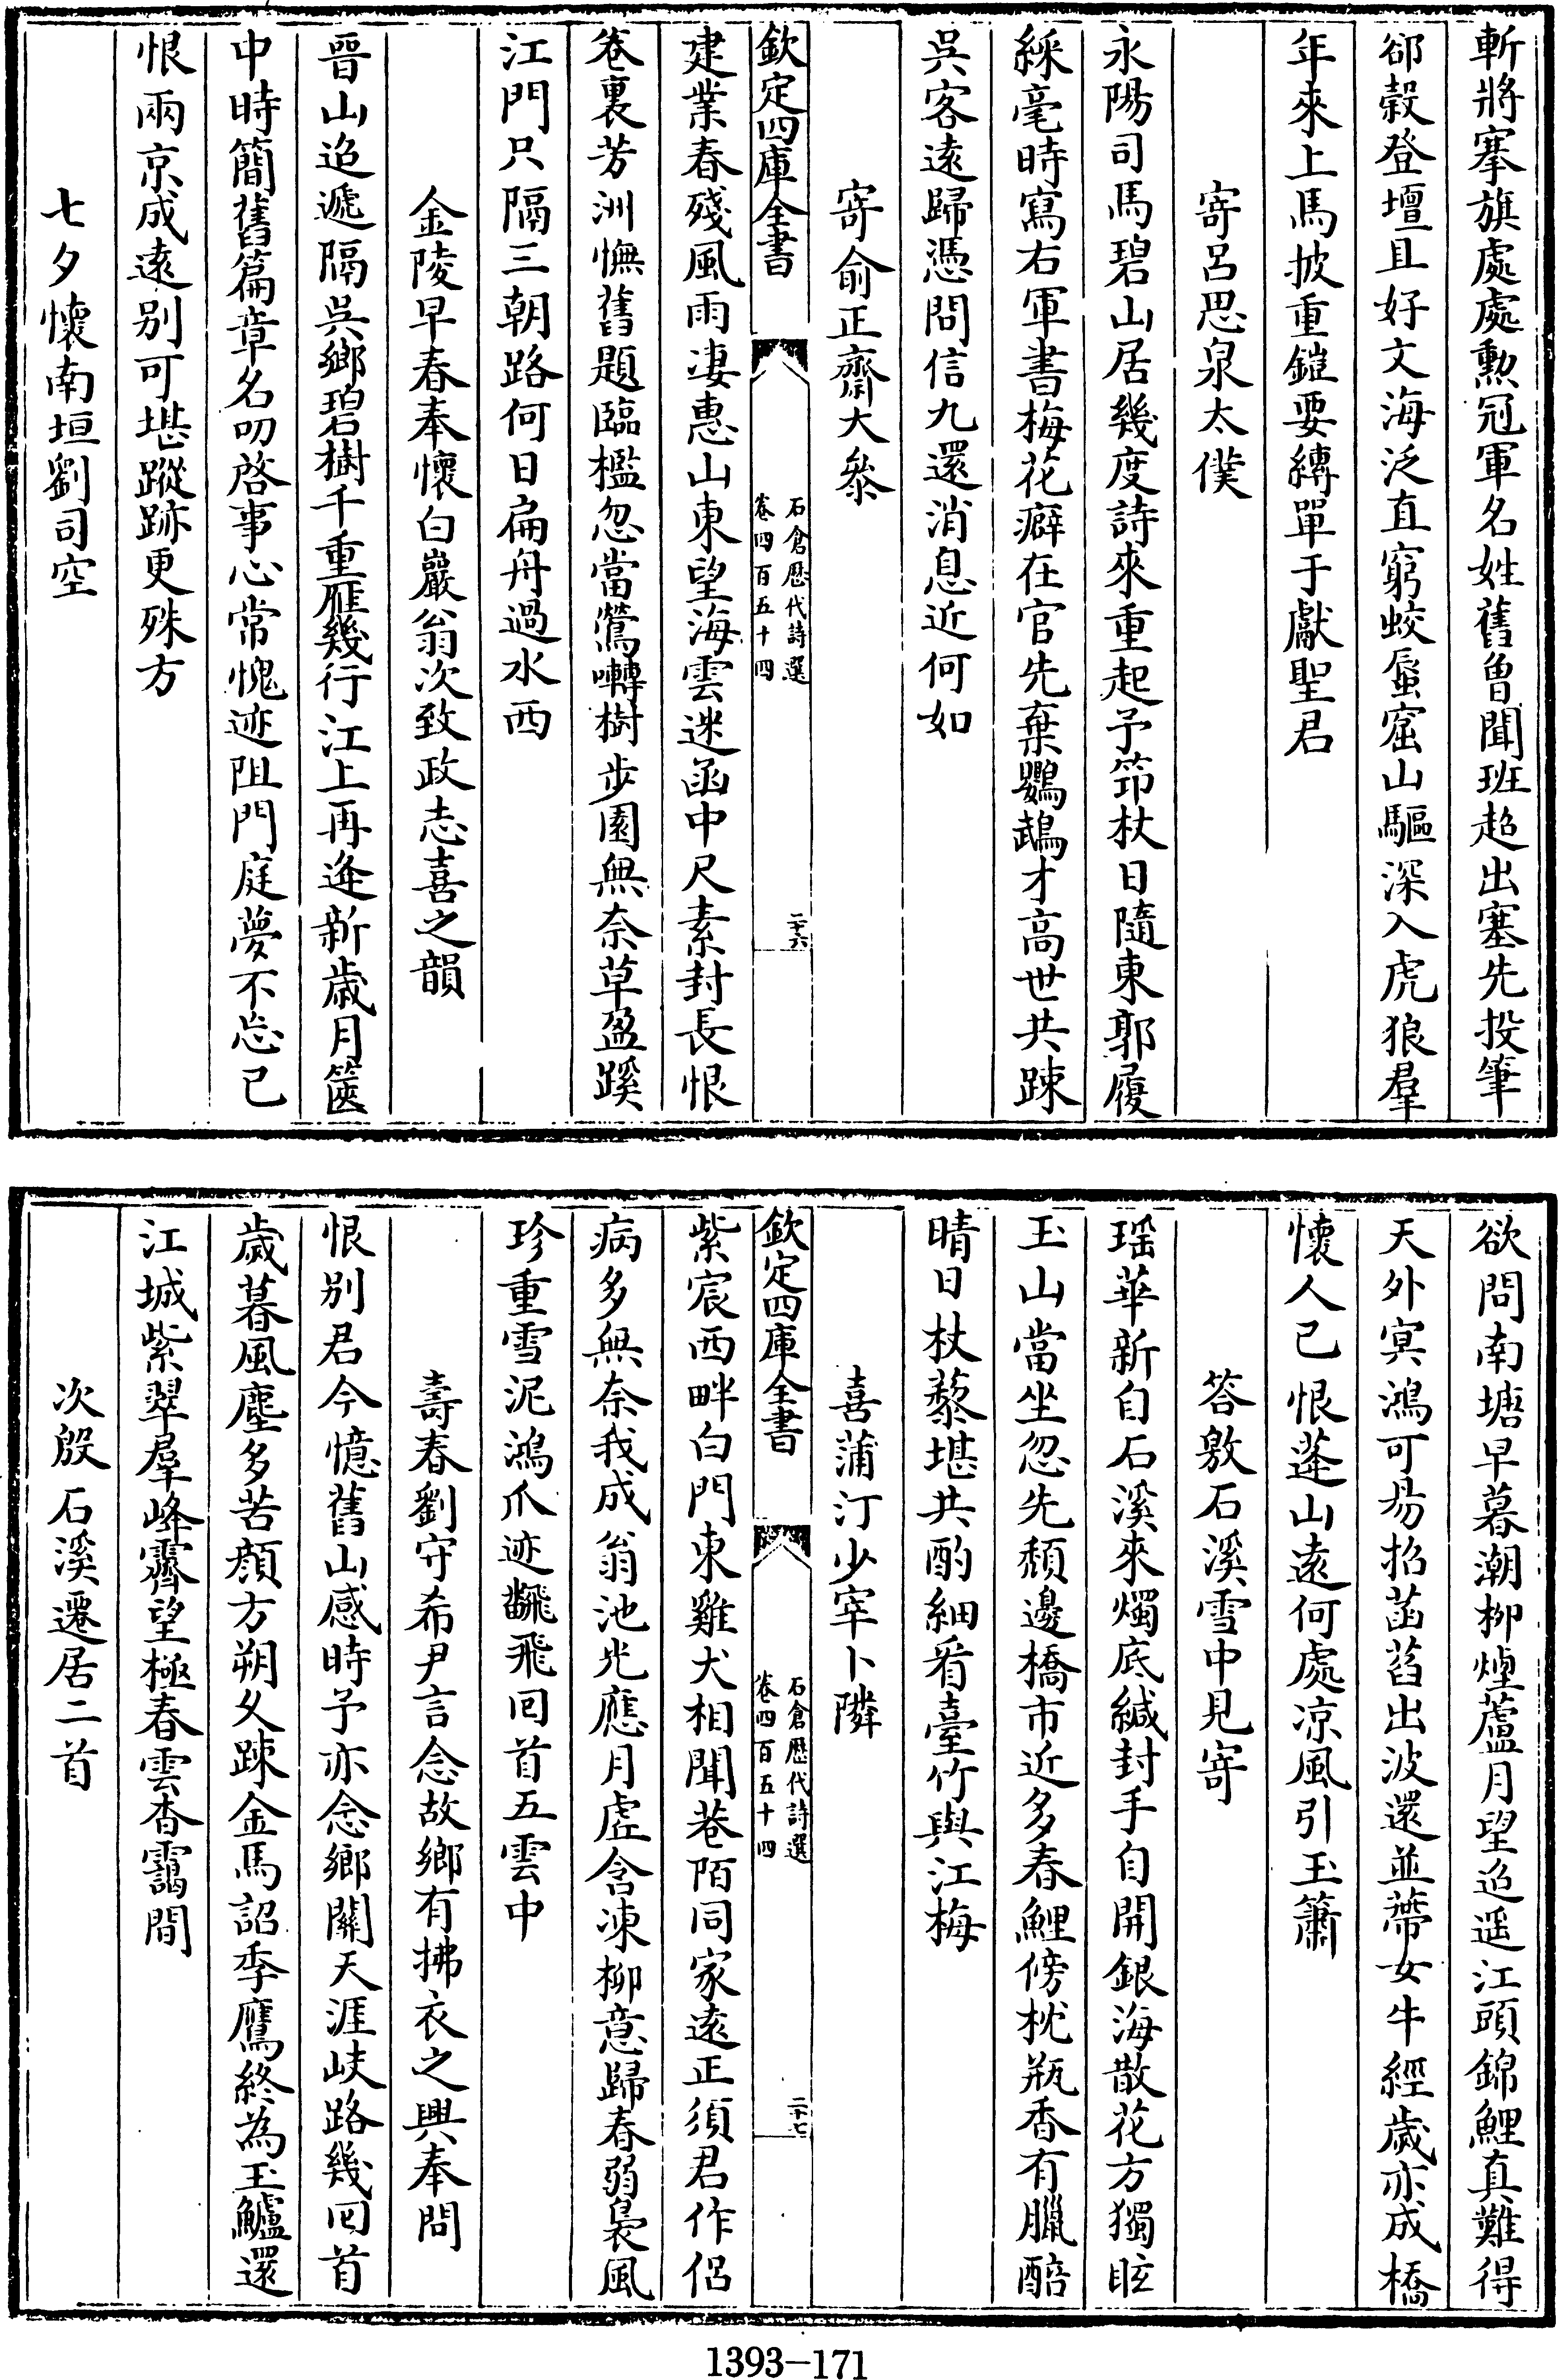 斬將搴旗處處勲冠軍名姓舊曽聞班超出塞先投筆
郤縠登壇且好文海泛直窮蛟蜃窟山驅深入虎狼羣
年來上馬披重鎧要縛單于獻聖君
寄呂思泉太僕
永陽司馬碧山居幾度詩來重起予笻杖日隨東郭履
綵毫時寫右軍書梅花癖在官先棄鸚鵡才高世共踈
吳客遠歸憑問信九還消息近何如
寄俞正齋大叅
欽定四庫全書
石倉歴代詩選
卷四百五十四
二十六
建業春殘風雨凄惠山東望海雲迷函中尺素封長恨
卷裏芳洲憮舊題臨檻忽當鶯囀樹歩園無奈草盈蹊
江門只隔三朝路何日扁舟過水西
金陵早春奉懷白巖翁次致政志喜之韻
晉山迢遞隔吳鄉碧樹千重雁幾行江上再逢新歲月篋
中時簡舊篇章名叨啓事心常愧迹阻門庭夢不忘已
恨兩京成遠别可堪蹤跡更殊方
七夕懷南垣劉司空
欲問南塘早暮潮柳煙蘆月望迢遥江頭錦鯉真難得
天外冥鴻可易招菡萏出波還並蔕女牛經歲亦成橋
懷人已恨蓬山遠何處凉風引玉簫
答敫石溪雪中見寄
瑶華新自石溪來燭底緘封手自開銀海散花方獨眩
玉山當坐忽先頽邊橋市近多春鯉傍枕瓶香有臘醅
晴日杖藜堪共酌細看臺竹與江梅
喜蒲汀少宰卜隣
欽定四庫全書
石倉歴代詩選
卷四百五十四
二十七
紫宸西畔白門東雞犬相聞巷陌同家遠正須君作侶
病多無奈我成翁池光應月虚含凍柳意歸春弱裊風
珍重雪泥鴻爪迹飜飛囘首五雲中
壽春劉守希尹言念故鄉有拂衣之興奉問
恨别君今憶舊山感時予亦念鄉關天涯岐路幾囘首
歲暮風塵多苦顔方朔久踈金馬詔季鷹終為玉鱸還
江城紫翠羣峰霽望極春雲杳靄間
次殷石溪遷居二首
1393—171